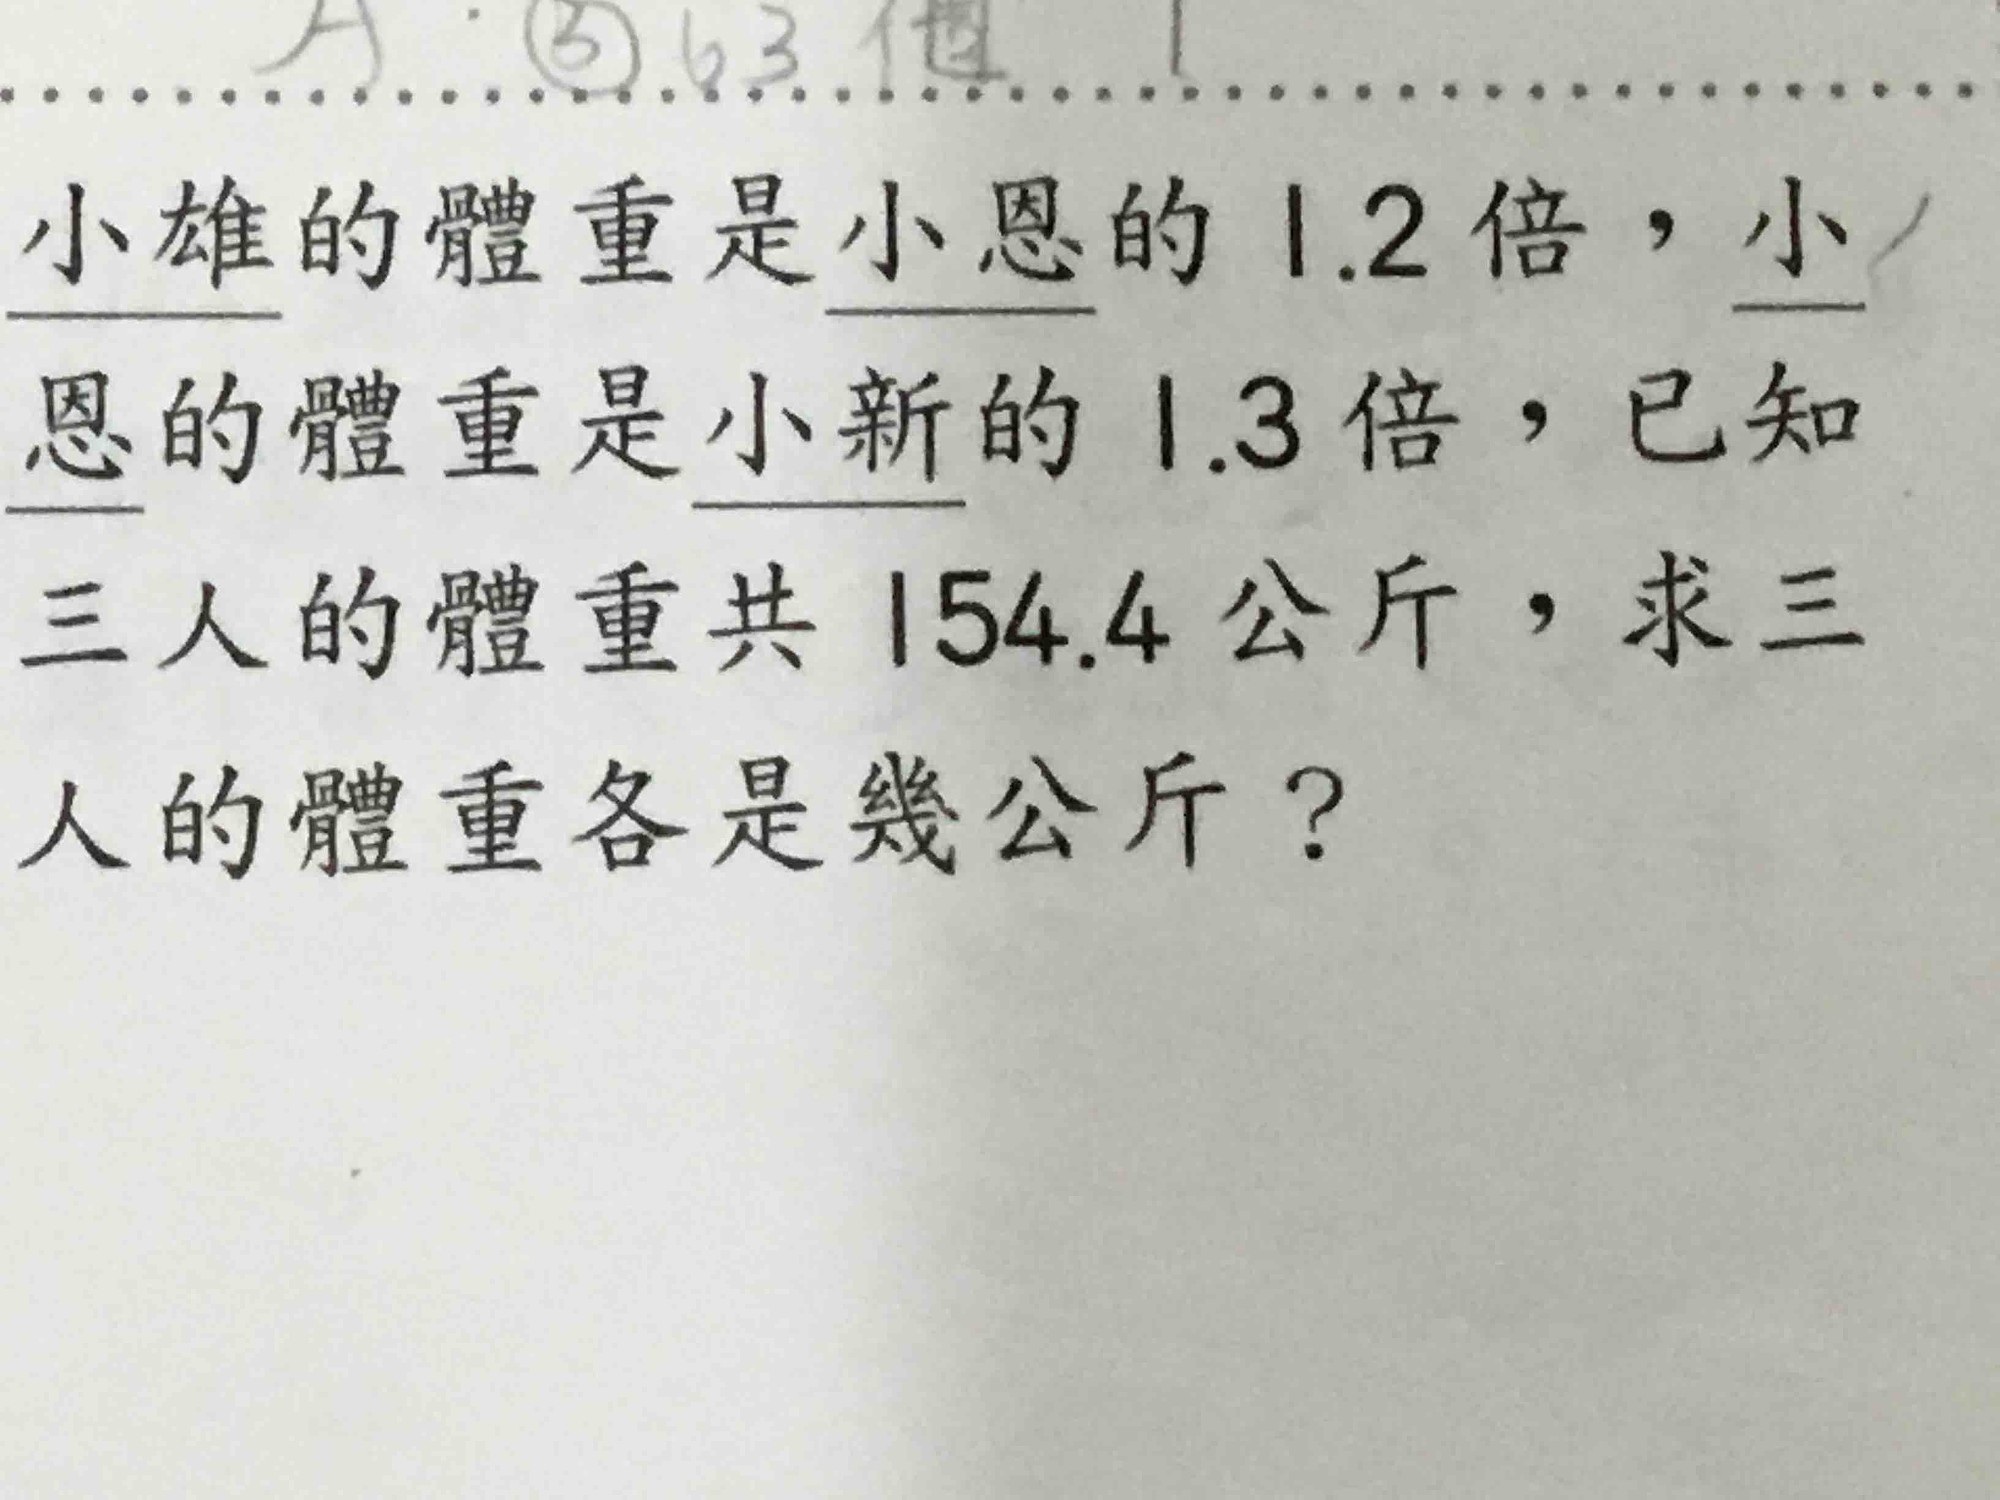 A. ③ 63個
小雄的體重是小恩的 1.2 倍，小
恩的體重是小新的 1.3 倍，已知
三人的體重共 154.4 公斤，求三
人的體重各是幾公斤？